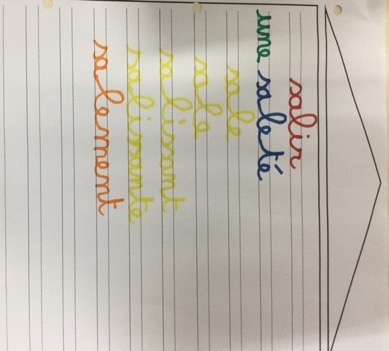 salir
une saleté
sale
salé
salissant
salissante
salement